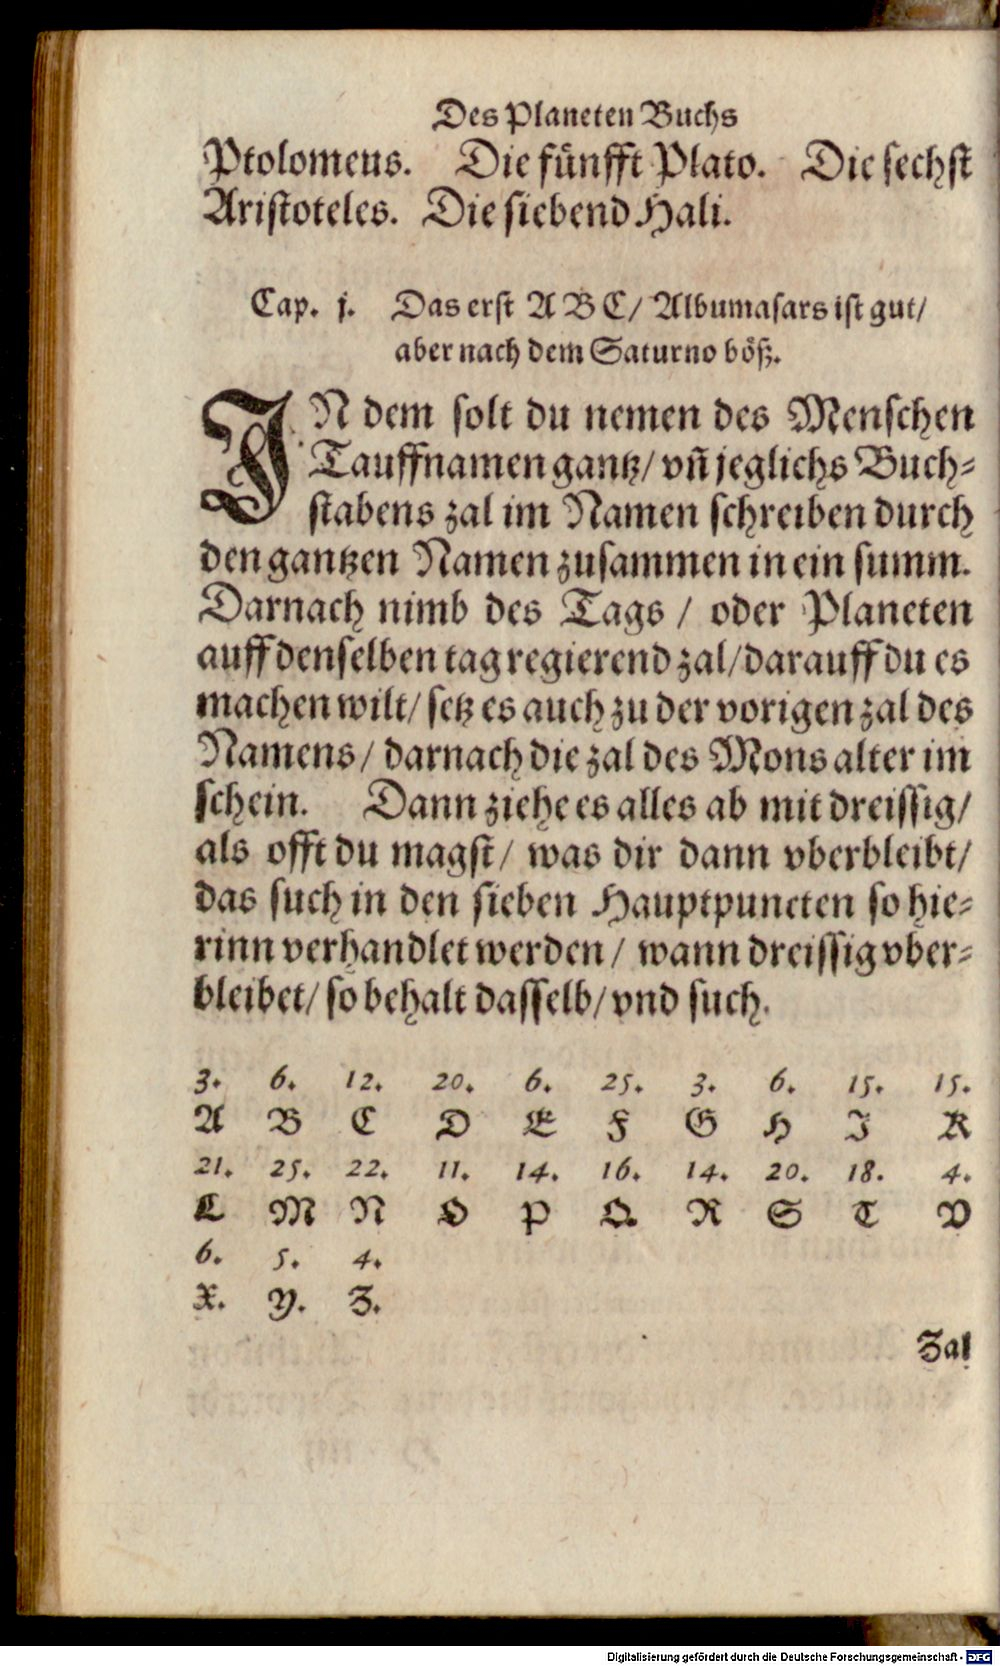 Des Planeten Buchs
Ptolomeus. Die fünfft Plato. Die sechst
Aristoteles. Die siebend Hali.
Cap. j. Das erst A B C/ Albumasars ist gut/
aber nach dem Saturno böß.
IN dem solt du nemen des Menschen
Tauffnamen gantz/ vñ jeglichs Buch-
stabens zal im Namen schreiben durch
den gantzen Namen zusammen in ein summ.
Darnach nimb des Tags / oder Planeten
auff denselben tag regierend zal/ darauff du es
machen wilt/ setz es auch zu der vorigen zal des
Namens/ darnach die zal des Mons alter im
schein. Dann ziehe es alles ab mit dreissig/
als offt du magst/ was dir dann vberbleibt/
das such in den sieben Hauptpuncten so hie-
rinn verhandlet werden/ wann dreissig vber-
bleibet/ so behalt dasselb/ vnd such.
3. 6. 12. 20. 6. 25. 3. 6. 15. 15.
A B C D E F G H I K
21. 25. 22. 11. 14. 16. 14. 20. 18. 4.
L M N O P Q R S T V
6. 5. 4.
X. Y. Z.
Zal
Digitalisierung gefördert durch die Deutsche Forschungsgemeinschaft - DFG